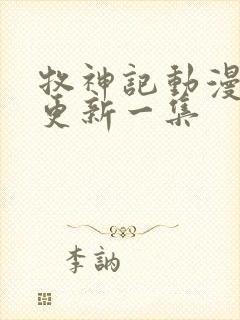 牧神記動漫
更新一集
李訥